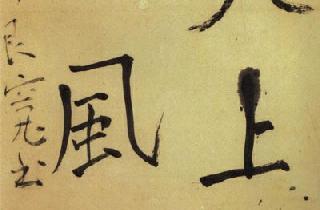 上
風
良寛書